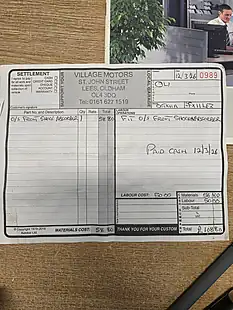 SETTLEMENT
VILLAGE MOTORS
ST. JOHN STREET
LEES, OLDHAM
OL4 3DQ
Tel: 0161 622 1519
12/3/26
0989
CASH
CHEQUE
Part No and Description
Rate
LABOUR OPERATIONS
O/S FRONT SHOCK ABSORBER 1
58.80
FIT O/S FRONT SHOCKABSORBER
PAID CASH 12/3/26
LABOUR COST:
50.00
Materials
58.80
Labour
50.00
Sub-Total
MATERIALS COST:
58.80
THANK YOU FOR YOUR CUSTOM
Total
£108.80